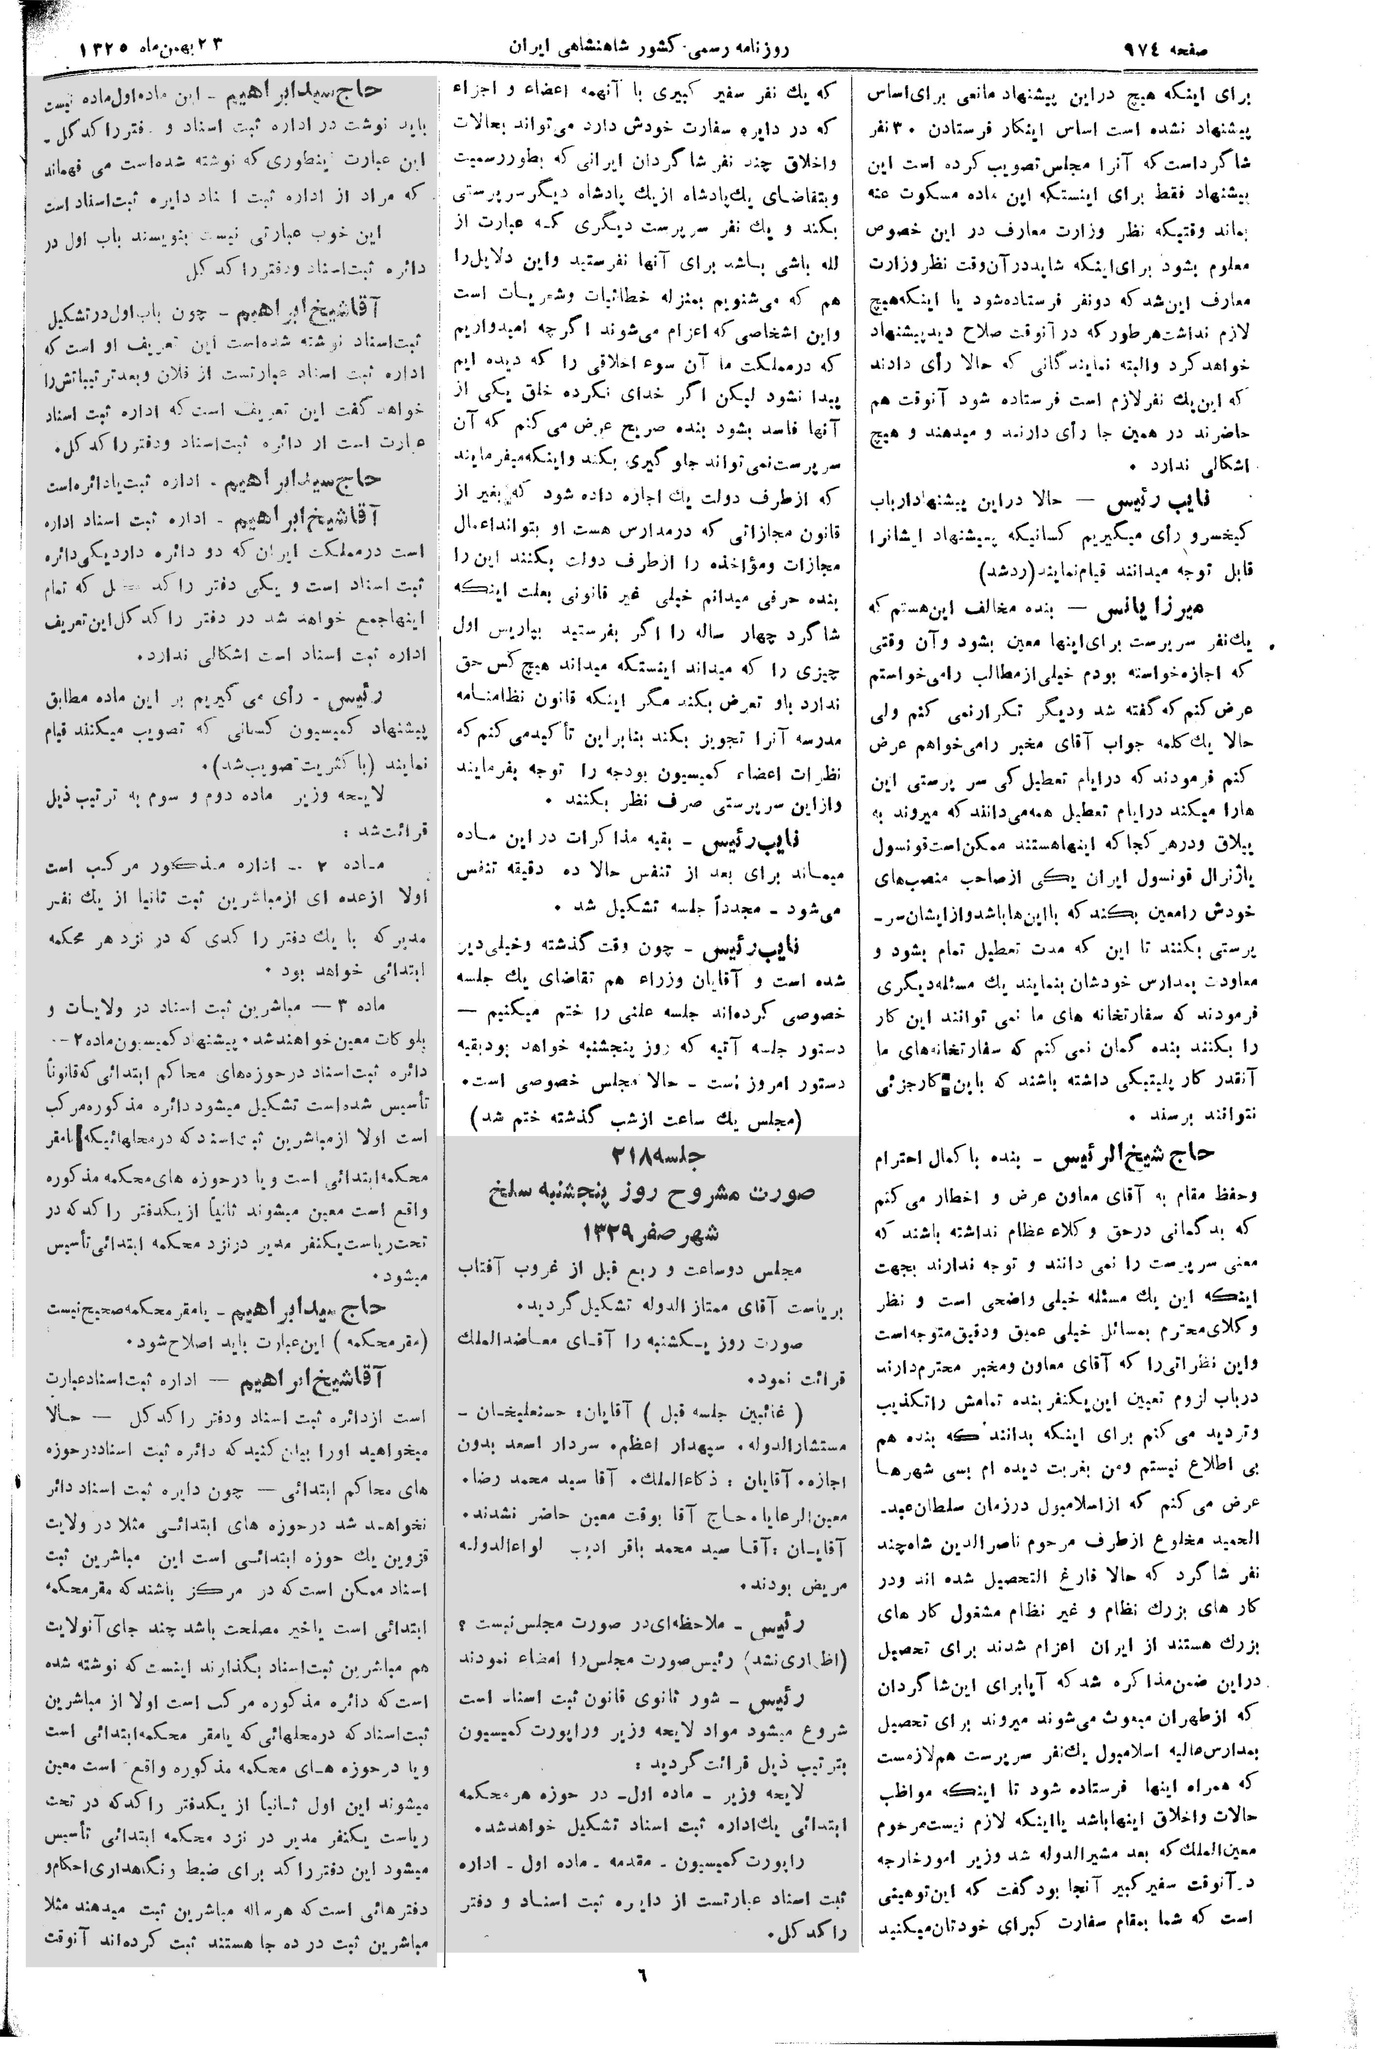 صفحه ۹۷٤
روزنامه رسمی کشور شاهنشاهی ایران
۲۳ بهمن‌ماه ۱۳۲۵
برای اینکه هیچ دراین پیشنهاد مانعی برای‌اساس
پیشنهاد نشده است اساس اینکار فرستادن ۳۰ نفر
شاگرد‌است‌که آنرا مجلس‌تصویب کرده است این
پیشنهاد فقط برای اینستکه این ماده مسکوت عنه
بماند وقتیکه نظر وزارت معارف در این خصوص
معلوم بشود برای‌اینکه شاید‌درآن‌وقت نظر‌وزارت
معارف این‌شد‌که دونفر فرستاده‌شود یا اینکه‌هیچ
لازم نداشت‌هر‌طور‌که در‌آنوقت صلاح دید‌پیشنهاد
خواهد‌کرد والبته نمایندگانی که حالا رأی دادند
که این‌یك نفر‌لازم است فرستاده شود آنوقت هم
حاضرند در همین جا رأی دارند و میدهند و هیچ
اشکالی ندارد .
نایب رئیس — حالا دراین پیشنهاد‌ارباب
کیخسرو رأی میگیریم کسانیکه پیشنهاد ایشانرا
قابل توجه میدانند قیام‌نمایند(ردشد)
میرزا یانس — بنده مخالف این‌هستم که
یك‌نفر سرپرست برای‌اینها معین بشود وآن وقتی
که اجازه‌خواسته بودم خیلی‌از‌مطالب رامی‌خواستم
عرض‌کنم که‌گفته شد ودیگر تکرار‌نمی کنم ولی
حالا یك‌کلمه جواب آقای مخبر رامی‌خواهم عرض
کنم فرمودند‌که در‌ایام تعطیل کی سر پرستی این
هارا میکند در‌ایام تعطیل همه‌می‌دانند‌که میروند به
ییلاق ودر‌هر کجا‌که اینها‌هستند ممکن‌است‌قونسول
یاژنرال قونسول ایران یکی از‌صاحب منصب‌های
خودش رامعین بکند‌که بااین‌ها‌باشد‌و‌ازایشان‌سر-
پرستی بکنند تا این که مدت تعطیل تمام بشود و
معاودت بمدارس خودشان بنمایند یك مسئله‌دیگری
فرمودند که سفارتخانه های ما نمی توانند این کار
را بکنند بنده گمان نمی کنم که سفارتخانه‌های ما
آنقدر کار پلیتیکی داشته باشند که باین کار‌جزئی
نتوانند برسند .
حاج شیخ‌الرئیس - بنده با کمال احترام
وحفظ مقام به آقای معاون عرض و اخطار می کنم
که بدگمانی درحق وکلاء عظام نداشته باشند که
معنی سرپرست را نمی دانند و توجه ندارند بجهت
اینکه این یك مسئله خیلی واضحی است و نظر
وکلای‌محترم بمسائل خیلی عمیق ودقیق‌متوجه‌است
واین نظراتی‌را که آقای معاون ومخبر محترم‌دارند
درباب لزوم تعیین این‌یکنفر‌بنده تمامش راتکذیب
وتردید می کنم برای اینکه بدانند که بنده هم
بی اطلاع نیستم ومن بغربت دیده ام بسی شهرها
عرض می کنم که ازاسلامبول درزمان سلطان‌عبد-
الحمید مخلوع ازطرف مرحوم ناصرالدین شاه‌چند
نفر شاگرد که حالا فارغ التحصیل شده اند ودر
کار های بزرك نظام و غیر نظام مشغول کار های
بزرك هستند از ایران اعزام شدند برای تحصیل
دراین ضمن‌مذاکره شد‌که آیا‌برای این‌شاگردان
که ازطهران مبعوث می‌شوند میروند برای تحصیل
بمدارس‌عالیه اسلامبول یك‌نفر سرپرست هم‌لازمست
که همراه اینها فرستاده شود تا اینکه مواظب
حالات واخلاق اینها‌باشد یا‌اینکه لازم نیست‌مرحوم
معین‌الملك‌که بعد مشیر‌الدوله شد وزیر امورخارجه
درآنوقت سفیر کبیر آنجا بود گفت که این‌توهینی
است که شما بمقام سفارت کبرای خودتان‌میکنید
که یك نفر سفیر کبیری با آنهمه اعضاء و اجزاء
که در دایره سفارت خودش دارد می‌تواند بحالات
واخلاق چند نفر شاگردان ایرانی که بطوررسمیت
وبتقاضای یك‌پادشاه ازیك پادشاه دیگر‌سرپرستی
بکند و یك نفر سرپرست دیگری که عبارت از
لله باشی باشد برای آنها نفرستید واین دلایل‌را
هم که می‌شنویم بمنزله خطائیات وشعریات است
واین اشخاصی‌که اعزام می‌شوند اگرچه امیدواریم
که درمملکت ما آن سوء اخلاقی را که دیده ایم
پیدا نشود لیکن اگر خدای نکرده خلق یکی از
آنها فاسد بشود بنده صریح عرض می‌کنم که آن
سرپرست‌نمی‌تواند جلو گیری بکند واینکه‌میفرمایند
که ازطرف دولت یك اجازه داده شود که بغیر از
قانون مجازاتی که درمدارس هست او بتواند‌اعمال
مجازات ومؤاخذه را ازطرف دولت بکنند این‌را
بنده حرفی میدانم خیلی غیر قانونی بعلت اینکه
شاگرد چهار ساله را اگر بفرستید بپاریس اول
چیزی را که میداند اینستکه میداند هیچ کس حق
ندارد باو تعرض بکند مگر اینکه قانون نظامنامه
مدرسه آنرا تجویز بکند بنابراین تأکید‌می کنم‌که
نظرات اعضاء کمیسیون بودجه را توجه بفرمایند
وازاین سرپرستی صرف نظر بکنند .
نایب‌رئیس - بقیه مذاکرات در این ماده
میماند برای بعد از تنفس حالا ده دقیقه تنفس
می‌شود - مجدداً جلسه تشکیل شد .
نایب‌رئیس - چون وقت گذشته وخیلی‌دیر
شده است و آقایان وزراء هم تقاضای یك جلسه
خصوصی کرده‌اند جلسه علنی را ختم میکنیم —
دستور جلسه آتیه که روز پنجشنبه خواهد بود‌بقیه
دستور امروز است - حالا مجلس خصوصی است.
(مجلس یك ساعت ازشب گذشته ختم شد)
جلسه ۲۱۸
صورت مشروح روز پنجشنبه سلخ
شهر صفر ۱۳۲۹
مجلس دوساعت و ربع قبل از غروب آفتاب
بریاست آقای ممتاز الدوله تشکیل گردید.
صورت روز یکشنبه را آقای معاضدالملك
قرائت نمود.
( غائبین جلسه قبل ) آقایان: حسنعلیخان -
مستشارالدوله. سپهدار اعظم. سردار اسعد بدون
اجازه. آقایان : ذکاءالملك. آقا سید محمد رضا.
معین‌الرعایا. حاج آقا بوقت معین حاضر نشدند.
آقایان :آقا سید محمد باقر ادیب لواءالدوله
مریض بودند.
رئیس - ملاحظه‌ای‌در صورت مجلس‌نیست ؟
(اظهاری‌نشد) رئیس‌صورت مجلس‌را امضاء نمودند
رئیس - شور ثانوی قانون ثبت اسناد است
شروع میشود مواد لایحه وزیر و‌راپورت کمیسیون
بترتیب ذیل قرائت‌گردید :
لایحه وزیر - ماده اول- در حوزه هر‌محکمه
ابتدائی یك‌اداره ثبت اسناد تشکیل خواهد‌شد.
راپورت کمیسیون - مقدمه - ماده اول - اداره
ثبت اسناد عبارتست از دایره ثبت اسناد و دفتر
راکد کل.
حاج سید‌ابراهیم - این ماده‌اول‌ماده نیست
باید نوشت در اداره ثبت اسناد و دفتر‌راکد کل -
این عبارت اینطوری که نوشته شده‌است می فهماند
که مراد از اداره ثبت اسناد دایره ثبت‌اسناد است
این خوب عبارتی نیست بنویسند باب اول در
دائره ثبت‌اسناد ودفتر‌راکد کل
آقا‌شیخ‌ابراهیم - چون باب‌اول‌درتشکیل
ثبت‌اسناد نوشته شده‌است این تعریف او است که
اداره ثبت اسناد عبارتست از فلان وبعد‌ترتیباتش‌را
خواهد گفت این تعریف است‌که اداره ثبت اسناد
عبارت است از دائره ثبت‌اسناد ودفتر‌راکد کل.
حاج‌سید‌ابراهیم - اداره ثبت‌یا‌دائره‌است
آقا‌شیخ‌ابراهیم - اداره ثبت اسناد اداره
است درمملکت ایران که دو دائره دارد‌یکی‌دائره
ثبت اسناد است و یکی دفتر راکد کل که تمام
اینهاجمع خواهد شد در دفتر راکد کل‌این‌تعریف
اداره ثبت اسناد است اشکالی ندارد.
رئیس - رأی می گیریم بر این ماده مطابق
پیشنهاد کمیسیون کسانی که تصویب میکنند قیام
نمایند (با‌کثریت‌تصویب‌شد).
لایحه وزیر ماده دوم و سوم به ترتیب ذیل
قرائت‌شد :
ماده ۲ - اداره مذکور مرکب است
اولا ازعده ای ازمباشرین ثبت ثانیا از یك نفر
مدیر که با یك دفتر راکدی که در نزد هر محکمه
ابتدائی خواهد بود .
ماده ۳ — مباشرین ثبت اسناد در ولایات و
بلوکات معین‌خواهند‌شد. پیشنهاد کمیسیون‌ماده ۲ -
دائره ثبت‌اسناد درحوزه‌های محاکم ابتدائی که‌قانوناً
تأسیس شده‌است تشکیل میشود دائره مذکوره‌مرکب
است اولا از‌مباشرین ثبت‌اسناد‌که درمحلهائیکه یا‌مقر
محکمه‌ابتدائی است ویا درحوزه های‌محکمه مذکوره
واقع است معین میشوند ثانیاً ازیکدفتر راکد‌که در
تحت‌ریاست‌یکنفر مدیر درنزد محکمه ابتدائی‌تأسیس
میشود.
حاج سید‌ابراهیم - یامقر‌محکمه‌صحیح‌نیست
(مقر‌محکمه) این‌عبارت باید اصلاح‌شود.
آقا‌شیخ‌ابراهیم — اداره ثبت‌اسناد‌عبارت
است ازدائره ثبت اسناد ودفتر راکد کل — حالا
میخواهید اورا بیان کنید که دائره ثبت اسناد‌درحوزه
های محاکم ابتدائی — چون دایره ثبت اسناد دائر
نخواهد شد درحوزه های ابتدائی مثلا در ولایت
قزوین یك حوزه ابتدائی است این مباشرین ثبت
اسناد ممکن است‌که در مرکز باشند‌که مقر‌محکمه
ابتدائی است یا‌خیر مصلحت باشد چند جای آنولایت
هم مباشرین ثبت‌اسناد بگذارند اینست‌که نوشته شده
است‌که دائره مذکوره مرکب است اولا از مباشرین
ثبت‌اسناد‌که درمحلهائی‌که یامقر محکمه‌ابتدائی است
ویا درحوزه های محکمه مذکوره واقع است معین
میشوند این اول ثانیاً از یکدفتر راکد‌که در تحت
ریاست یکنفر مدیر در نزد محکمه ابتدائی تأسیس
میشود این دفتر‌راکد برای ضبط ونگاهداری‌احکام‌و
دفترهائی است‌که هرساله مباشرین ثبت میدهند مثلا
مباشرین ثبت در ده جا هستند ثبت کرده‌اند آنوقت
٦